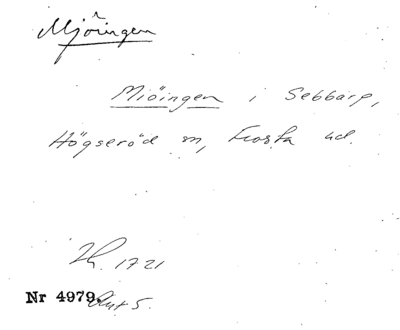 Mjöingen
Miöingen i Sebbarp,
Högseröd sn, Frosta hd.
1721
Nr 4979.